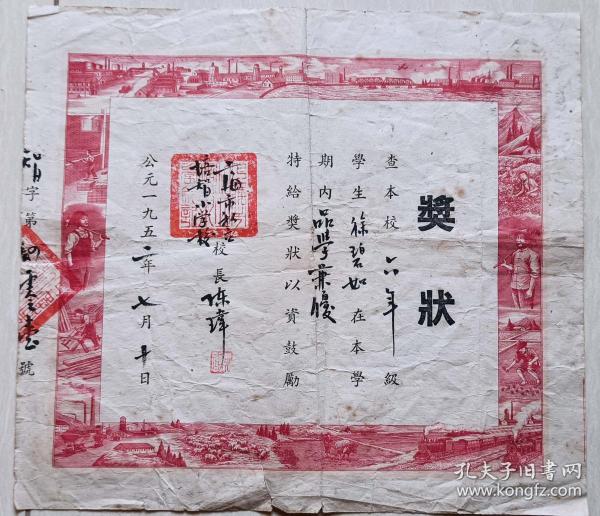 獎狀
查本校六年級
學生徐碧如在本學
期內品學兼優
特給獎狀以資鼓勵
上海市私立
培智小学校校長陈瑋
公元一九五二年七月十日
智字第 號
孔夫子旧书网
www.kongfz.com